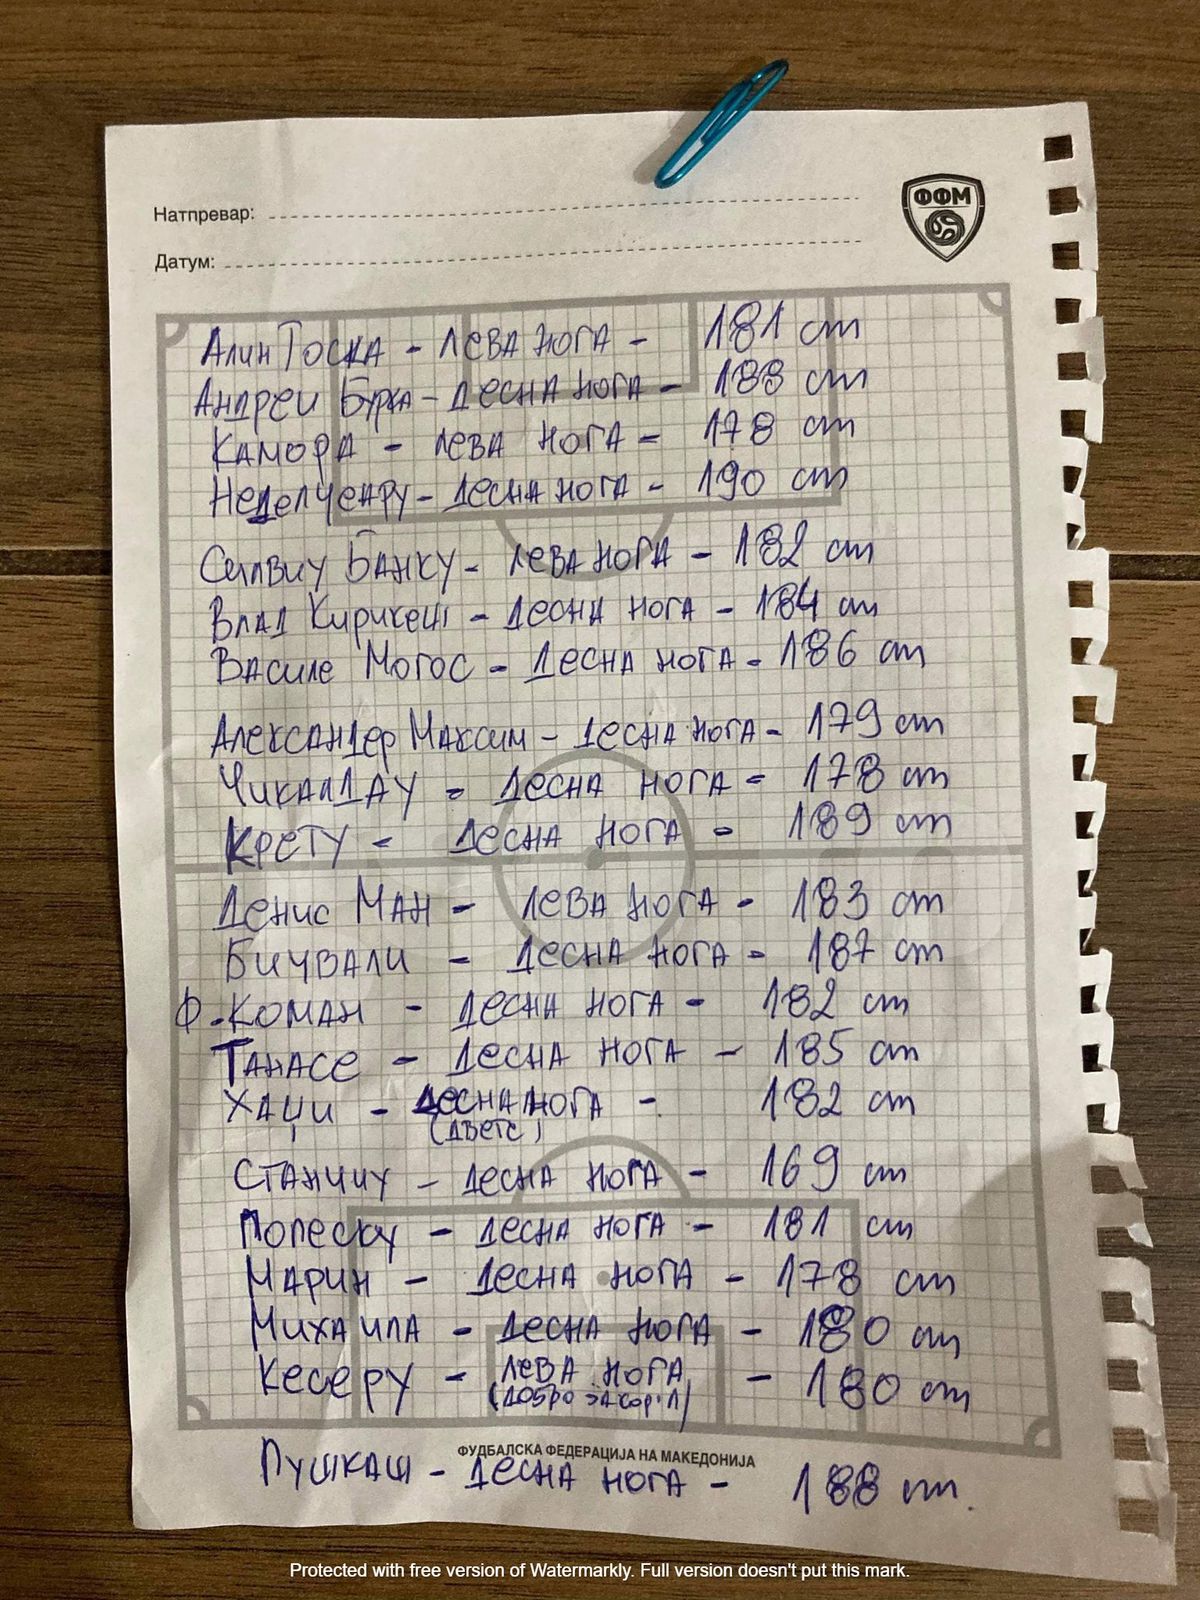 Натпревар:
ФФМ
Датум:
Алин Тоска - ЛЕВА НОГА - 181 cm
Андреи Бурка - ДЕСНА НОГА - 188 cm
Камора - ЛЕВА НОГА - 178 cm
Неделчеару - ДЕСНА НОГА - 190 cm
Силвиу Банку - ЛЕВА НОГА - 182 cm
Влад Кирикеш - ДЕСНА НОГА - 184 cm
Василе Могос - ДЕСНА НОГА - 186 cm
Александер Максим - ДЕСНА НОГА - 179 cm
Чикалдау - ДЕСНА НОГА - 178 cm
Крету - ДЕСНА НОГА - 189 cm
Денис Ман - ЛЕВА НОГА - 183 cm
Бичвали - ДЕСНА НОГА - 187 cm
Ф. Коман - ДЕСНА НОГА - 182 cm
Танасе - ДЕСНА НОГА - 185 cm
Хаџи - ДЕСНА НОГА - 182 cm
(ДВЕТЕ)
Станчиу - ДЕСНА НОГА - 169 cm
Попеску - ДЕСНА НОГА - 181 cm
Марин - ДЕСНА НОГА - 178 cm
Михаила - ДЕСНА НОГА - 180 cm
Кесеру - ЛЕВА НОГА - 180 cm
(ДОБРО ЗАКОР.Л)
ФУДБАЛСКА ФЕДЕРАЦИЈА НА МАКЕДОНИЈА
Пушкаш - ДЕСНА НОГА - 188 cm.
Protected with free version of Watermarkly. Full version doesn't put this mark.